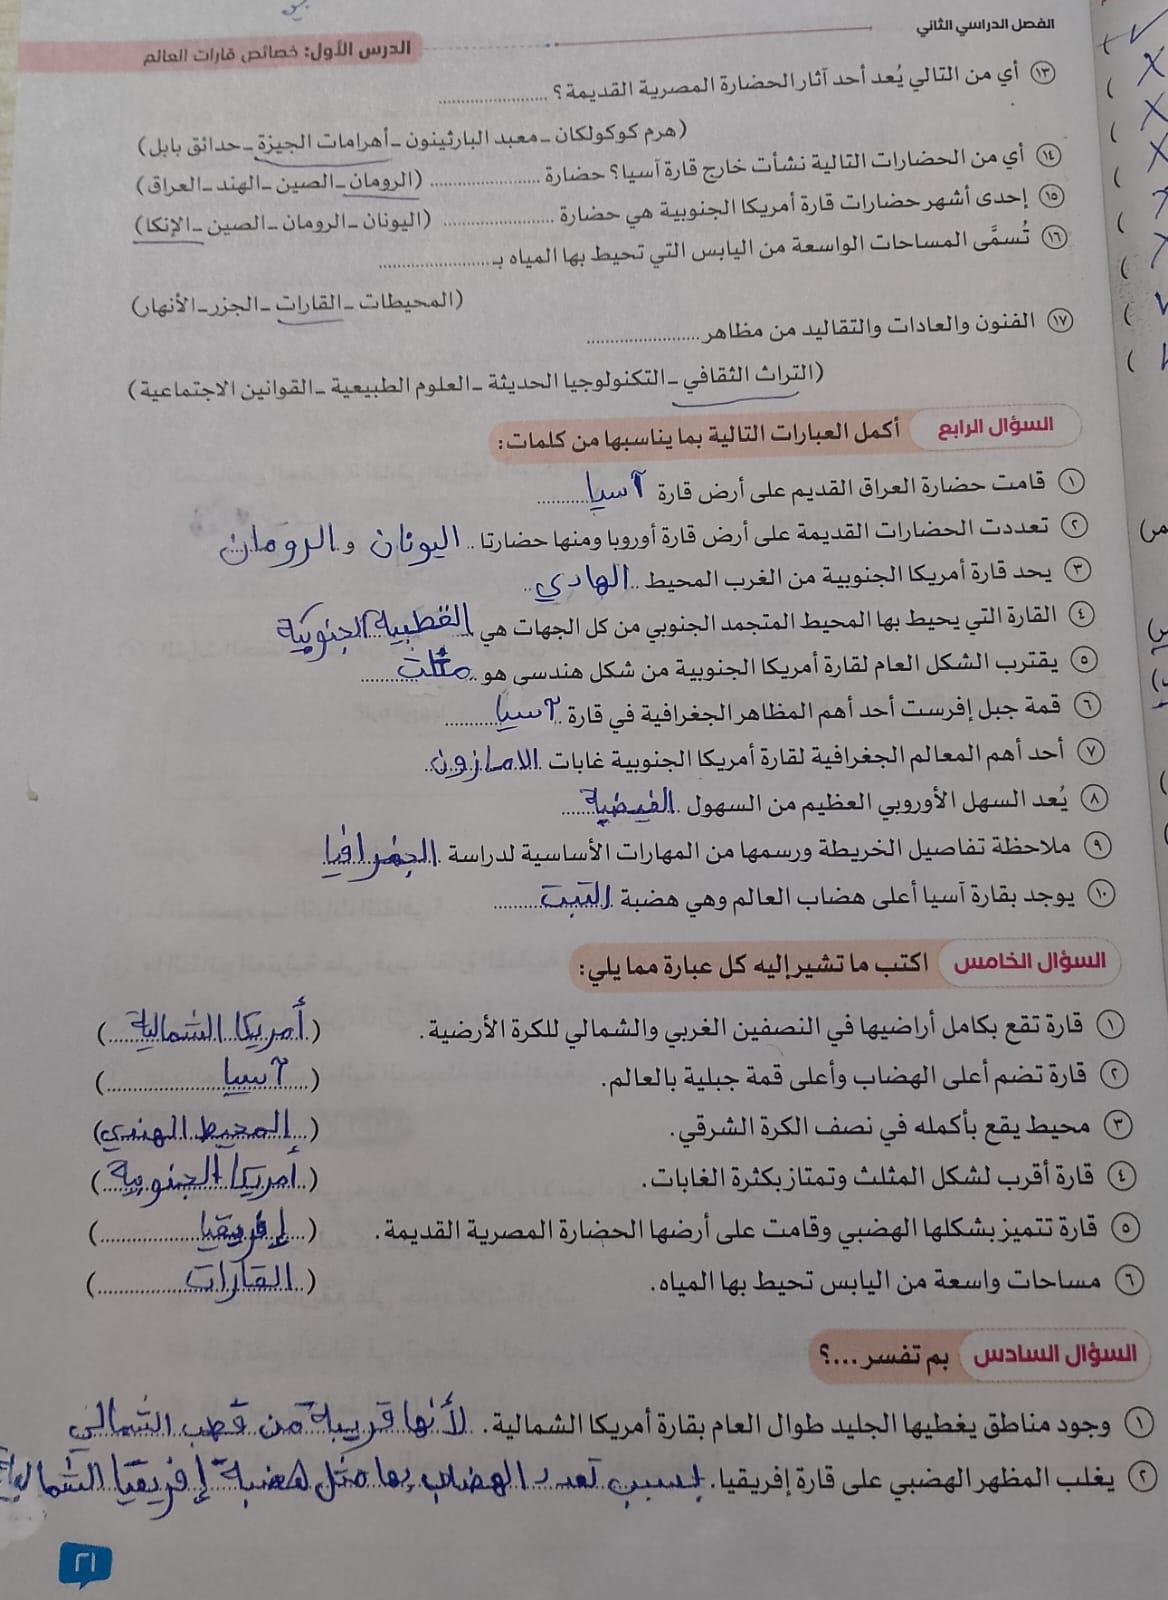 الفصل الدراسي الثاني
الدرس الأول: خصائص قارات العالم
١٣ أي من التالي يُعد أحد آثار الحضارة المصرية القديمة؟ ....................
(هرم كوكولكان – معبد البارثينون – أهرامات الجيزة – حدائق بابل)
١٤ أي من الحضارات التالية نشأت خارج قارة آسيا؟ حضارة .................... (الرومان – الصين – الهند – العراق)
١٥ إحدى أشهر حضارات قارة أمريكا الجنوبية هي حضارة .................... (اليونان – الرومان – الصين – الإنكا)
١٦ تُسمَّى المساحات الواسعة من اليابس التي تحيط بها المياه بـ ....................
(المحيطات – القارات – الجزر – الأنهار)
١٧ الفنون والعادات والتقاليد من مظاهر ....................
(التراث الثقافي – التكنولوجيا الحديثة – العلوم الطبيعية – القوانين الاجتماعية)
السؤال الرابع أكمل العبارات التالية بما يناسبها من كلمات:
١ قامت حضارة العراق القديم على أرض قارة آسيا
٢ تعددت الحضارات القديمة على أرض قارة أوروبا ومنها حضارتا اليونان و الرومان
٣ يحد قارة أمريكا الجنوبية من الغرب المحيط الهادي
٤ القارة التي يحيط بها المحيط المتجمد الجنوبي من كل الجهات هي القطبية الجنوبية
٥ يقترب الشكل العام لقارة أمريكا الجنوبية من شكل هندسى هو مثلث
٦ قمة جبل إفرست أحد أهم المظاهر الجغرافية في قارة آسيا
٧ أحد أهم المعالم الجغرافية لقارة أمريكا الجنوبية غابات الامازون
٨ يُعد السهل الأوروبي العظيم من السهول الفيضية
٩ ملاحظة تفاصيل الخريطة ورسمها من المهارات الأساسية لدراسة الجغرافيا
١٠ يوجد بقارة آسيا أعلى هضاب العالم وهي هضبة التبت
السؤال الخامس اكتب ما تشير إليه كل عبارة مما يلي:
١ قارة تقع بكامل أراضيها في النصفين الغربي والشمالي للكرة الأرضية. (أمريكا الشمالية)
٢ قارة تضم أعلى الهضاب وأعلى قمة جبلية بالعالم. (آسيا)
٣ محيط يقع بأكمله في نصف الكرة الشرقي. (المحيط الهندي)
٤ قارة أقرب لشكل المثلث وتمتاز بكثرة الغابات. (أمريكا الجنوبية)
٥ قارة تتميز بشكلها الهضبي وقامت على أرضها الحضارة المصرية القديمة. (إفريقيا)
٦ مساحات واسعة من اليابس تحيط بها المياه. (القارات)
السؤال السادس بم تفسر ...؟
١ وجود مناطق يغطيها الجليد طوال العام بقارة أمريكا الشمالية. لأنها قريبة من قطب الشمالي
٢ يغلب المظهر الهضبي على قارة إفريقيا. بسبب تعدد الهضاب بها مثل هضبة إفريقيا الشمالية
٢١